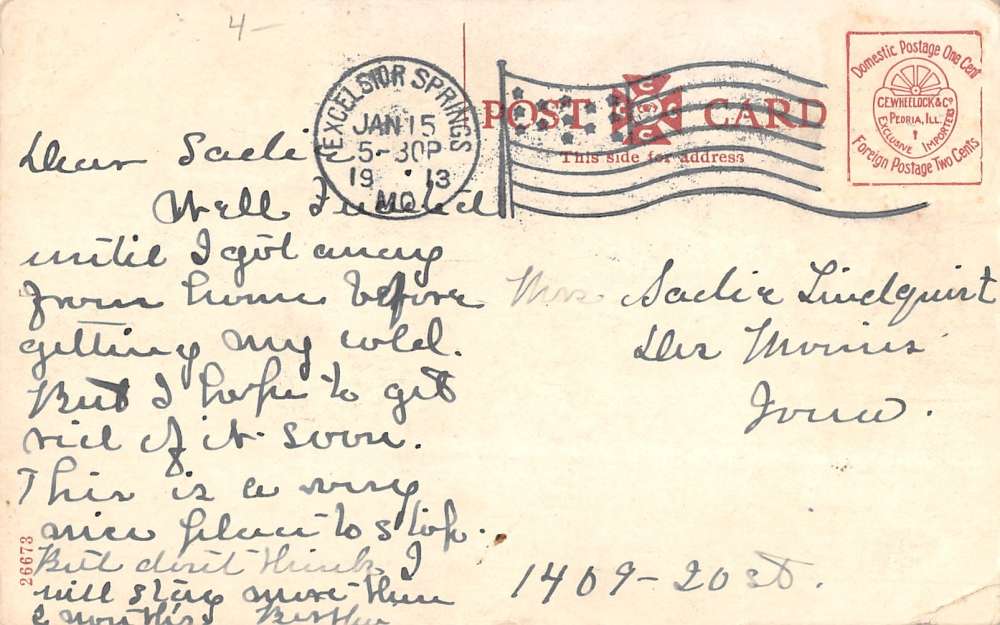 4-
EXCELSIOR SPRINGS
JAN 15
5-30P
1913
MO.
POST CARD
This side for address
Domestic Postage One Cent
C.E. WHEELOCK & Co
PEORIA, ILL.
EXCLUSIVE IMPORTERS
Foreign Postage Two Cents
Dear Sadie
Well I waited
until I got away
from home before
getting my cold.
But I hope to get
rid of it soon.
This is a very
nice place to stop.
But dont think I
will stay more then
2 months. Bertha
Mrs Sadie Lindquist
Des Moines
Iowa.
1409-20 st.
26673